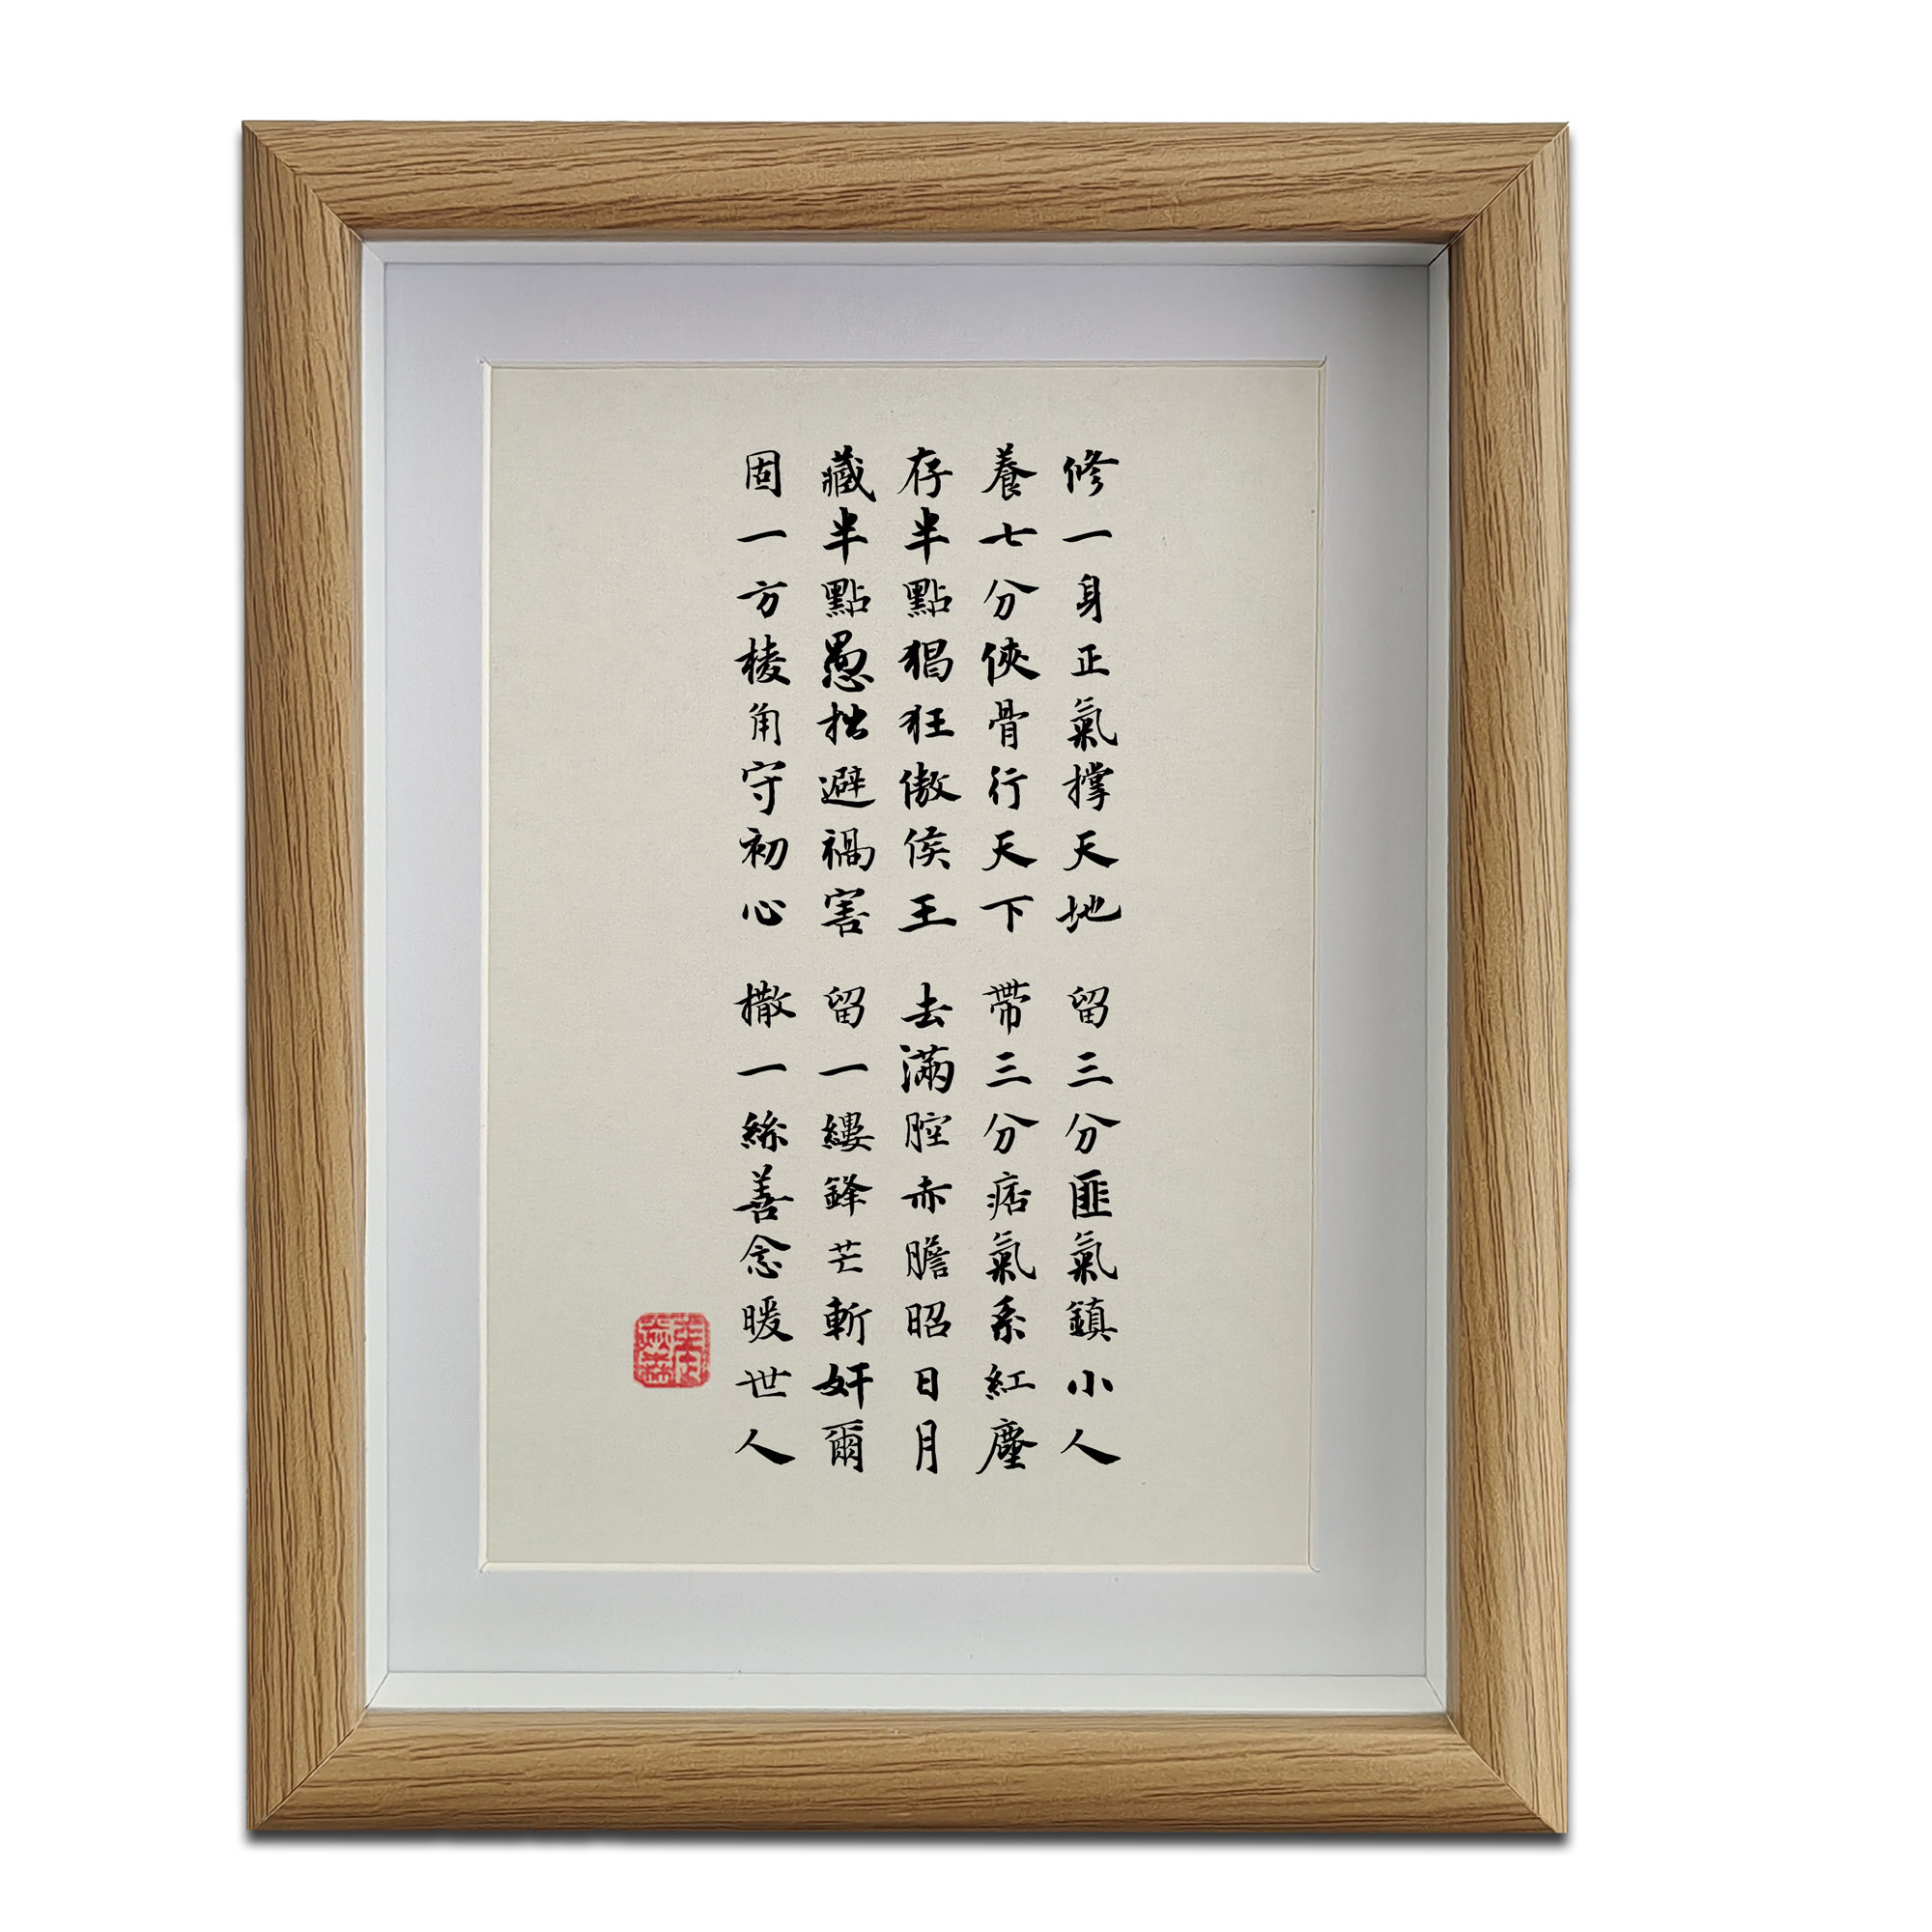 修一身正氣撑天地 留三分匪氣鎮小人
養七分俠骨行天下 帶三分痞氣系紅塵
存半點猖狂傲侯王 去滿腔赤膽昭日月
藏半點愚拙避禍害 留一縷鋒芒斬奸爾
固一方棱角守初心 撒一絲善念暖世人